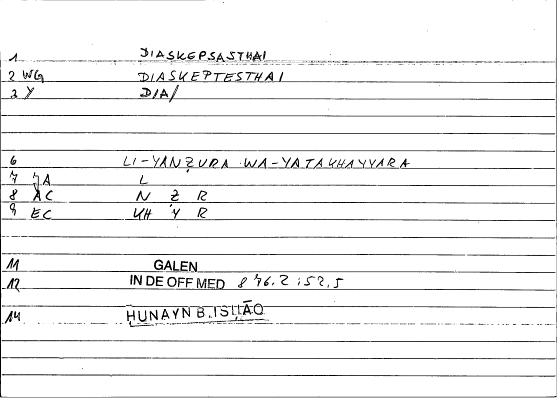 1 DIASKEPSASTHAI
2 WG DIASKEPTESTHAI
3 Y DIA/
6 LI-YANẒURA WA-YATAKHAYYARA
7 JA L
8 AC N Ẓ R
9 EC KH Y R
11 GALEN
12 IN DE OFF MED 8 76.2 ; 52,5
14 ḤUNAYN B. ISḤĀQ